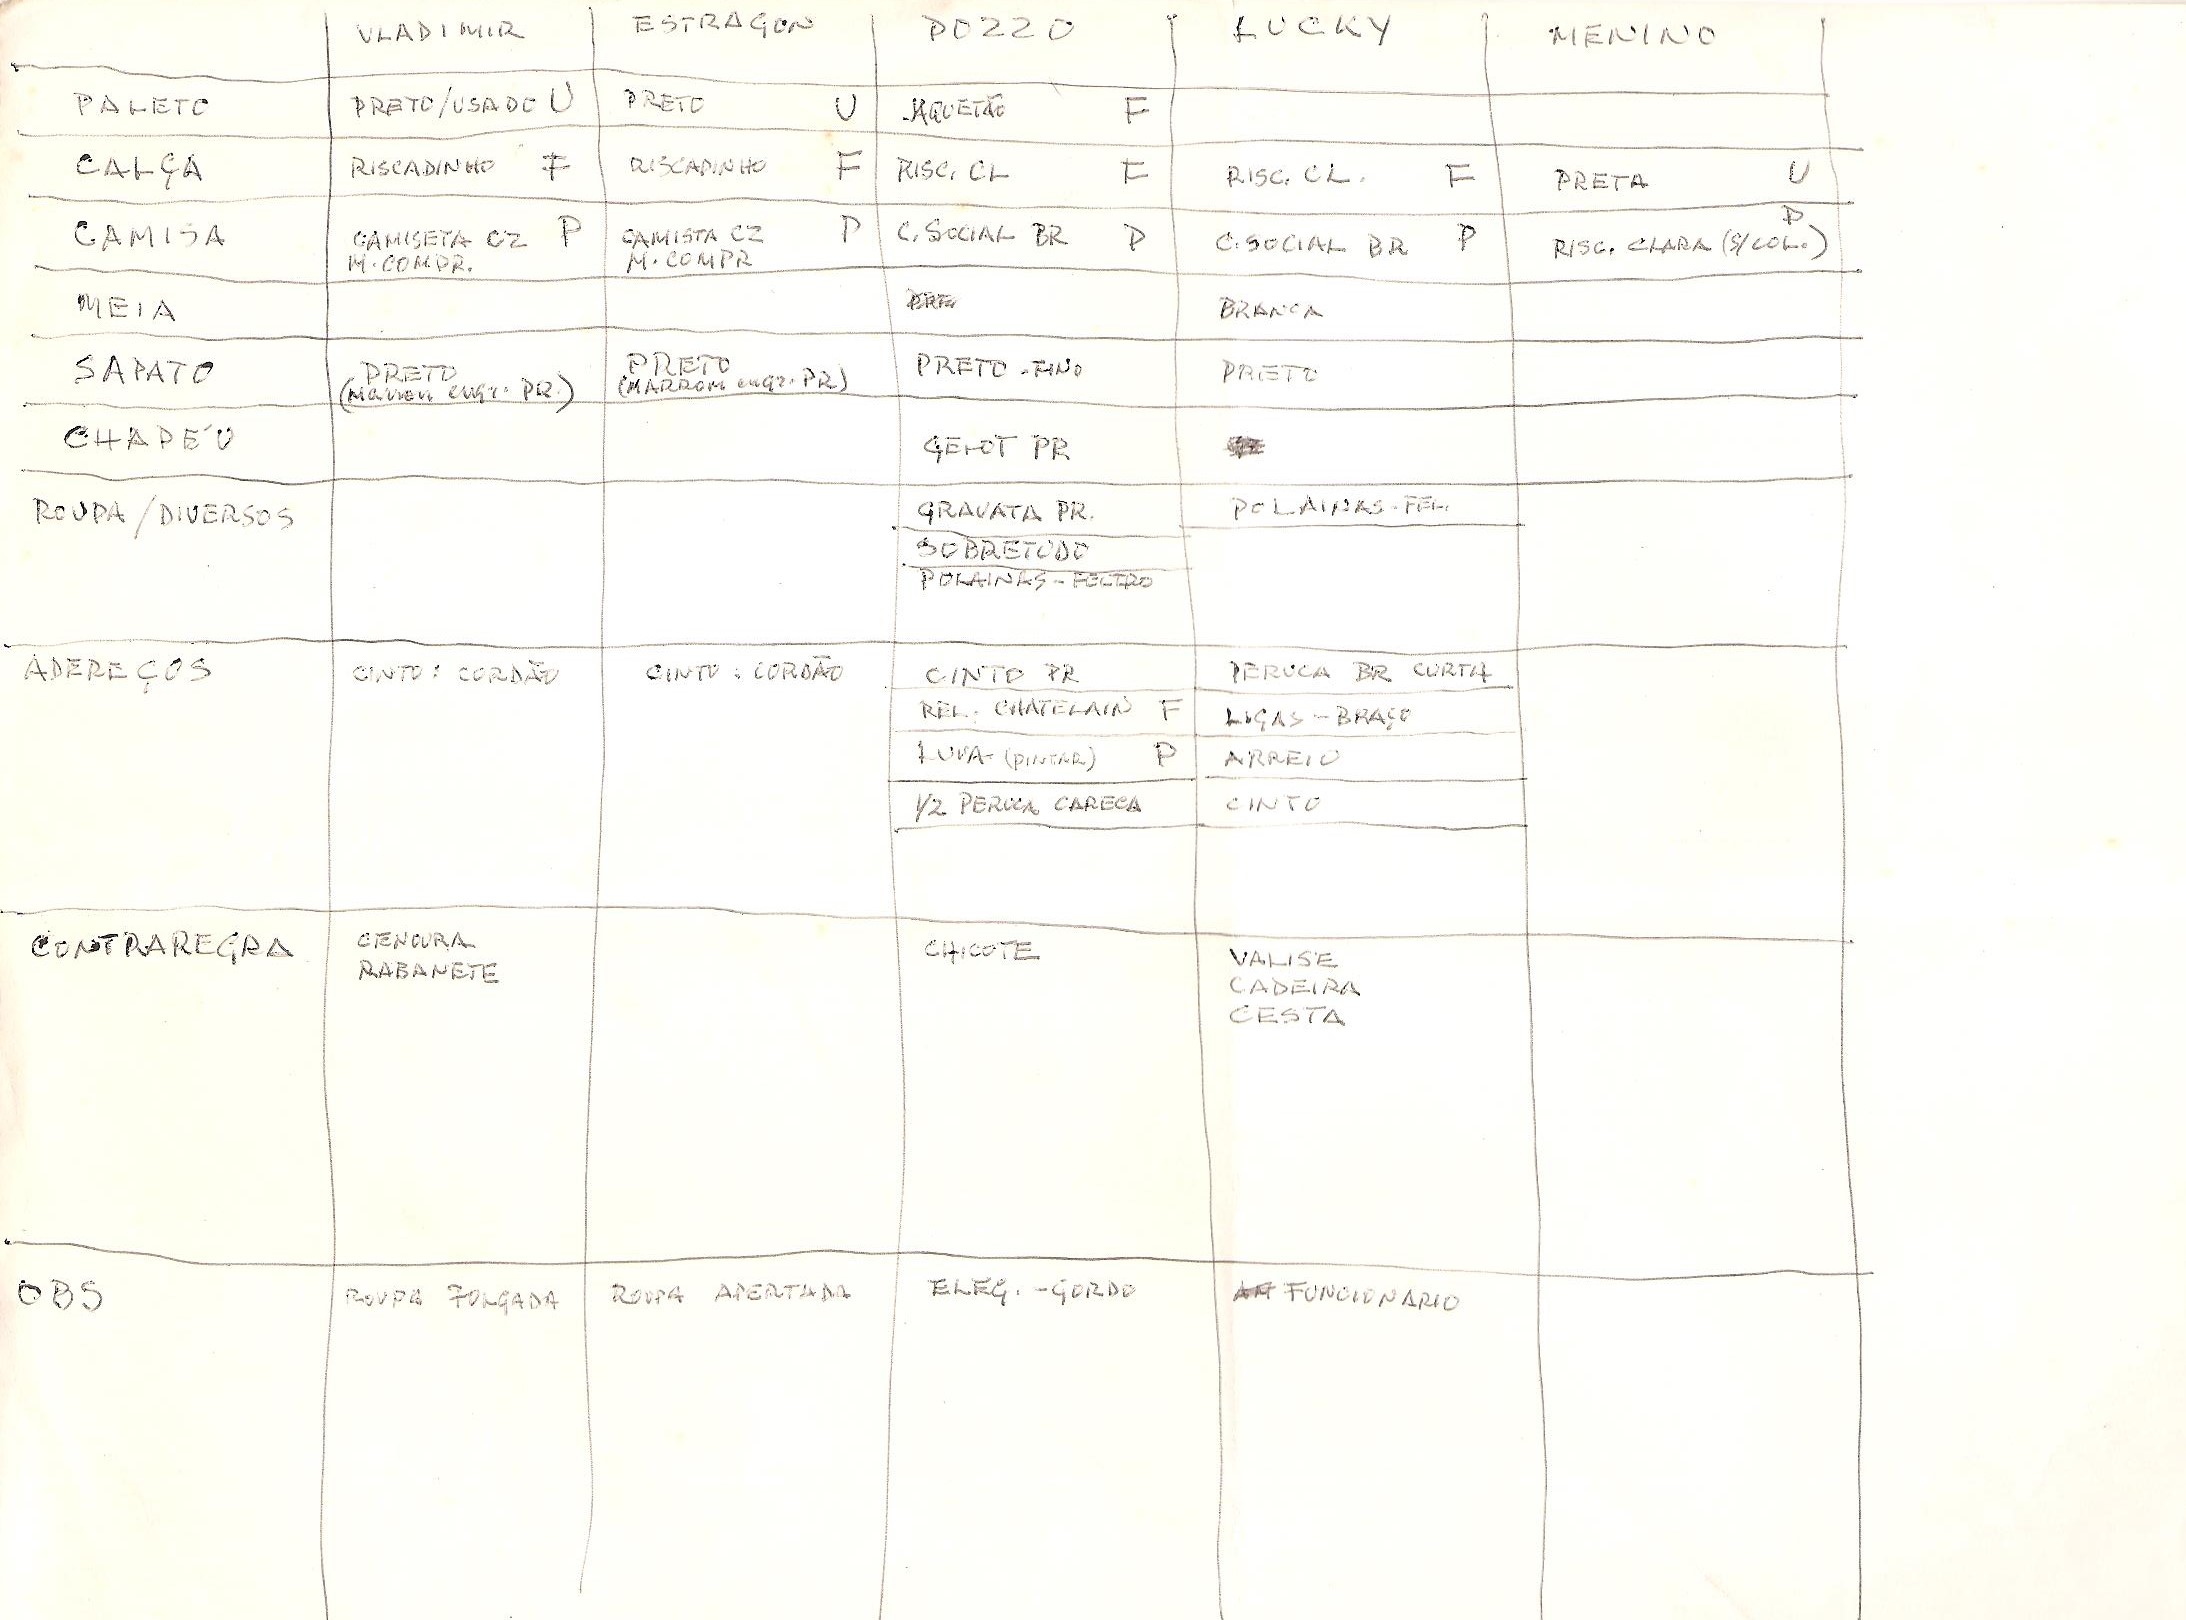 VLADIMIR ESTRAGON POZZO LUCKY MENINO
PALETO PRETO/USADO U PRETO U JAQUETÃO F
CALÇA RISCADINHO F RISCADINHO F RISC. CL F RISC. CL. F PRETA U
CAMISA CAMISETA CZ P CAMISTA CZ P C. SOCIAL BR P C. SOCIAL BR P RISC. CLARA (S/COL.) P
M. COMPR. M. COMPR
MEIA BRANCA
SAPATO PRETO PRETO PRETO - FINO PRETO
(Marrom engr. PR.) (MARROM engr. PR)
CHAPÉU GELOT PR
ROUPA/DIVERSOS GRAVATA PR. POLAINAS - FEL.
SOBRETUDO
POLAINAS - FELTRO
ADEREÇOS CINTO: CORDÃO CINTO: CORDÃO CINTO PR PERUCA BR CURTA
REL. CHATELAIN F LIGAS - BRAÇO
LUVA - (PINTAR) P ARREIO
1/2 PERUCA CARECA CINTO
CONTRAREGRA CENOURA CHICOTE VALISE
RABANETE CADEIRA
CESTA
OBS ROUPA FOLGADA ROUPA APERTADA ELEG. - GORDO FUNCIONARIO